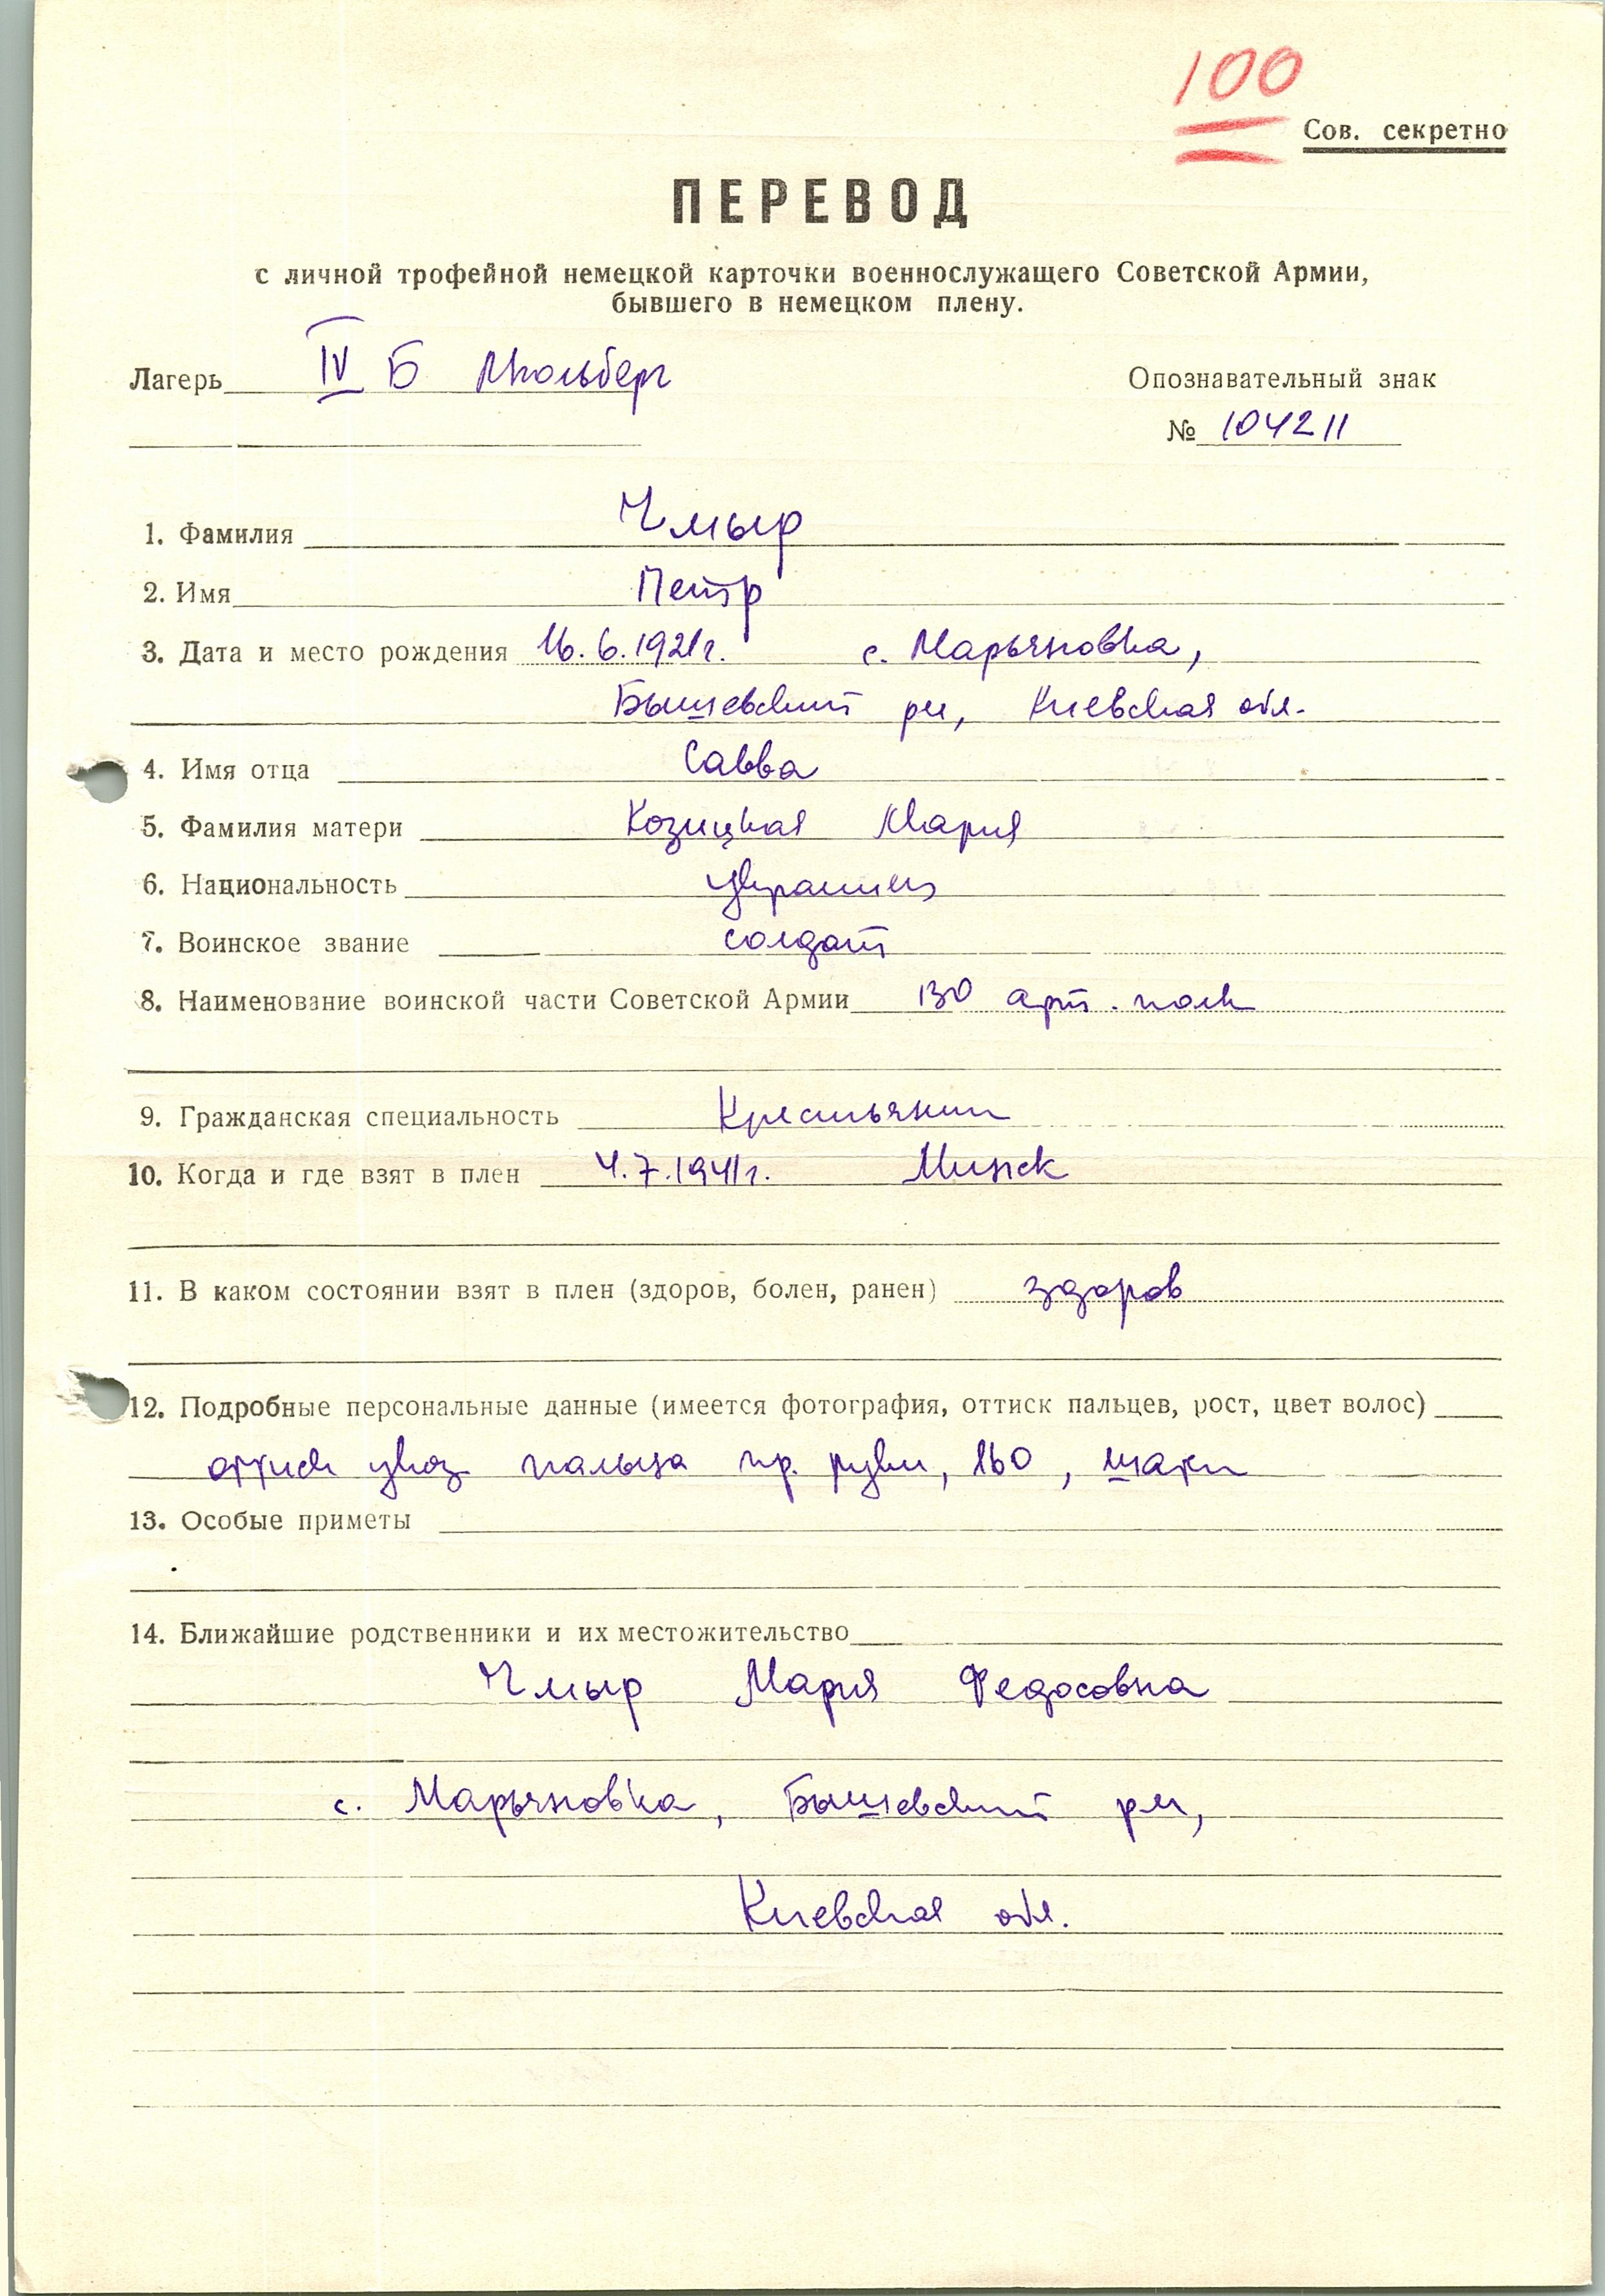 100
Сов. секретно
ПЕРЕВОД
с личной трофейной немецкой карточки военнослужащего Советской Армии,
бывшего в немецком плену.
Лагерь IV Б Мюльберг
Опознавательный знак
№ 104211
1. Фамилия Чмыр
2. Имя Петр
3. Дата и место рождения 16.6.1921г. с. Марьяновка,
Бышевский рн, Киевская обл.
4. Имя отца Савва
5. Фамилия матери Козицкая Мария
6. Национальность украинец
7. Воинское звание солдат
8. Наименование воинской части Советской Армии 130 арт. полк
9. Гражданская специальность Крестьянин
10. Когда и где взят в плен 4.7.1941г. Минск
11. В каком состоянии взят в плен (здоров, болен, ранен) здоров
12. Подробные персональные данные (имеется фотография, оттиск пальцев, рост, цвет волос)
оттиск указ пальца пр. руки, 160,
13. Особые приметы
14. Ближайшие родственники и их местожительство
Чмыр Мария Федосовна
с. Марьяновка, Бышевский рн,
Киевская обл.